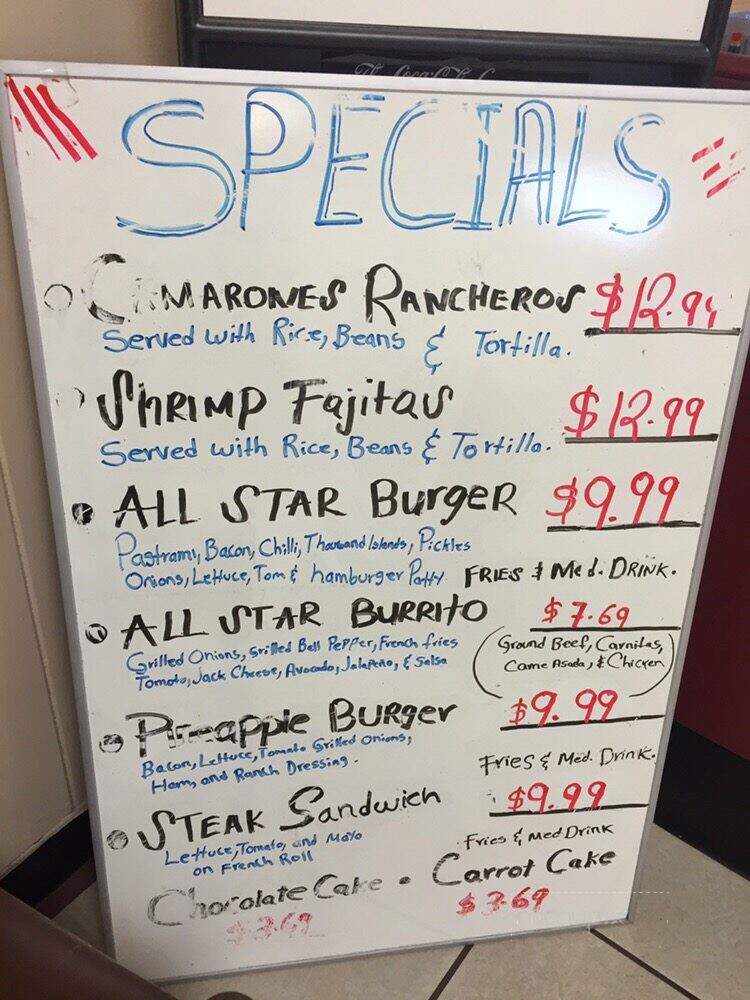 The Coca-Cola C
SPECIALS
CAMARONES RANCHEROS $12.99
Served with Rice, Beans & Tortilla.
SHRIMP Fajitas $12.99
Served with Rice, Beans & Tortilla.
ALL STAR BurgeR $9.99
Pastrami, Bacon, Chilli, Thousand Islands, Pickles
Onions, Lettuce, Tom & hamburger Patty FRIES & Med. DRINK.
ALL STAR BURRITO $7.69
Grilled Onions, Grilled Bell Pepper, French fries
Tomato, Jack Cheese, Avocado, Jalapeño, & Salsa
Ground Beef, Carnitas,
Carne Asada, & Chicken
Pineapple BURger $9.99
Bacon, Lettuce, Tomato Grilled Onions,
Ham, and Ranch Dressing.
Fries & Med. Drink.
STEAK Sandwich $9.99
Lettuce, Tomato, and Mayo
on French Roll
Fries & Med Drink
Chocolate Cake • Carrot Cake
$3.69 $3.69